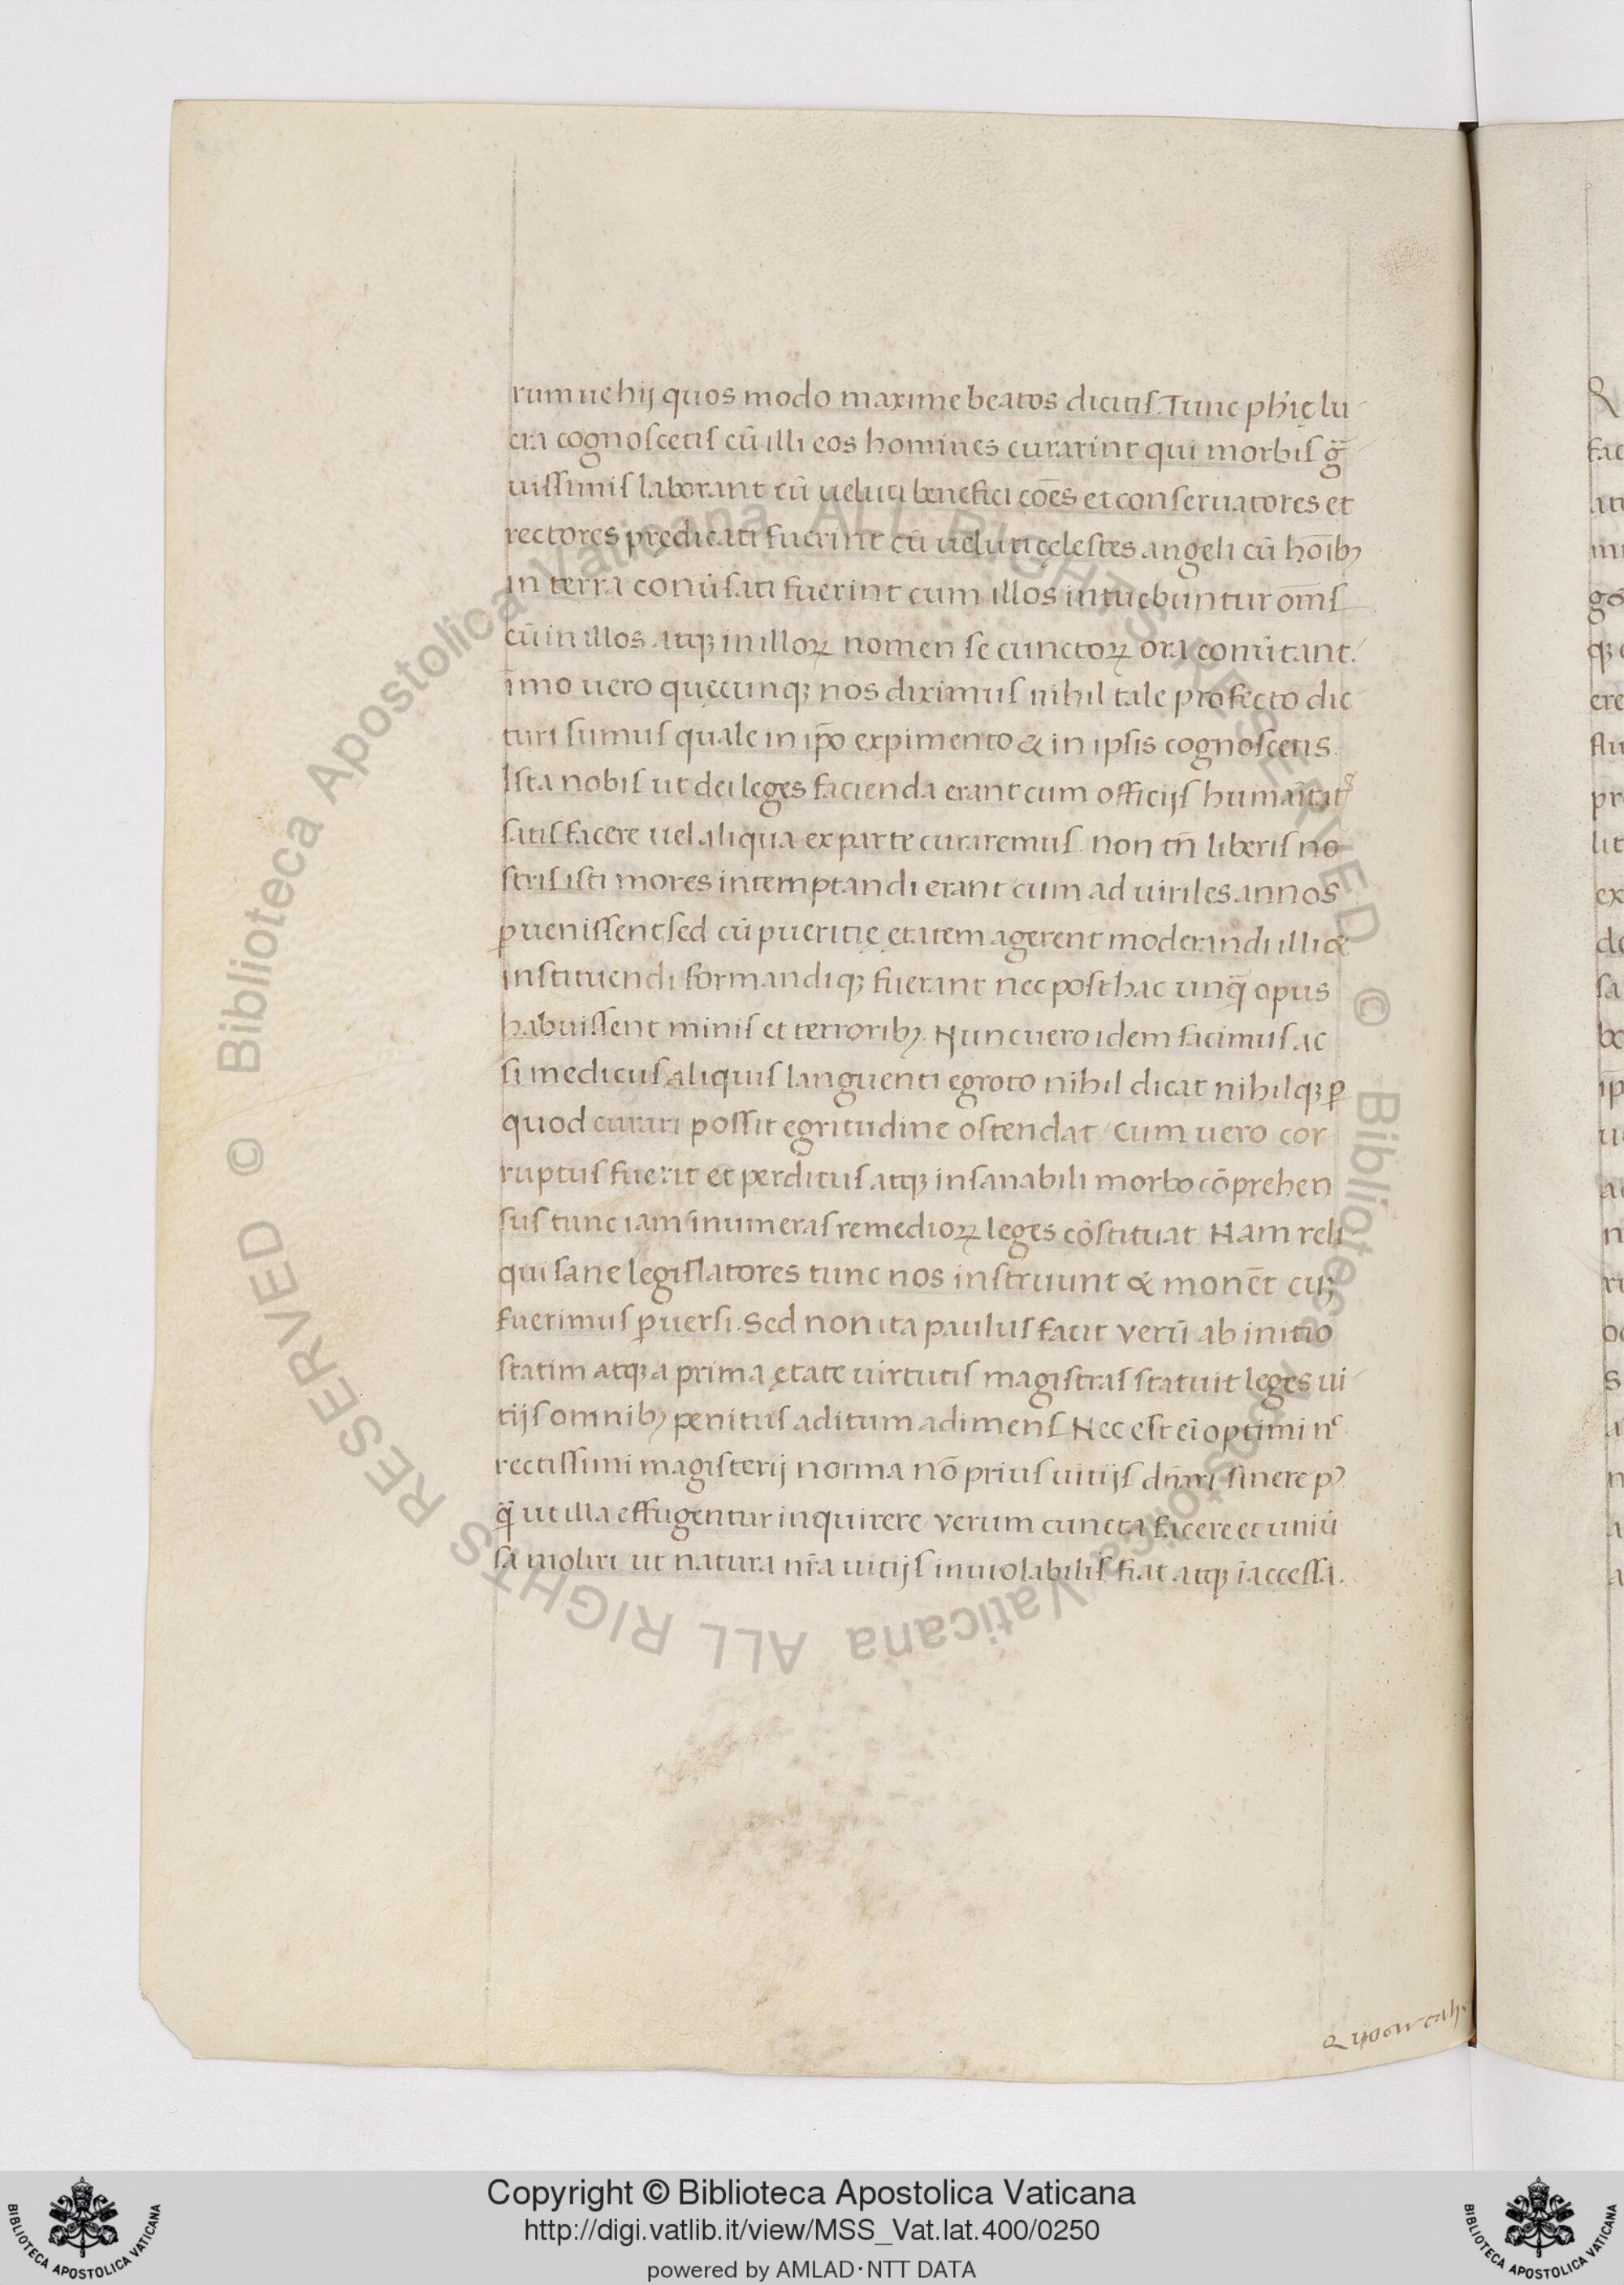 rum ue hij quos modo maxime beatos dicitis. Tunc ph̃ię lu
cra cognoscetis cũ illi eos homines curarint qui morbis g̃
uissimis laborant cũ ueluti benefici cões et conseruatores et
rectores prędicati fuerint cũ ueluti cęlestes angeli cũ hõibꝫ
in terra conũsati fuerint cum illos intuebuntur om̃s
cũ in illos atqꝫ in illoꝝ nomen se cunctoꝝ ora conũtant.
ĩmo uero quęcunqꝫ nos diximus nihil tale profecto dic
turi sumus quale in ip̃o expimento & in ipsis cognoscetis.
Ista nobis ut dei leges facienda erant cum officijs humãitat
satisfacere uel aliqua ex parte curaremus. non tñ liberis no
stris isti mores intemptandi erant cum ad uiriles annos
ꝑuenissent sed cũ pueritię ętatem agerent moderandi illi &
instituendi formandiqꝫ fuerant nec posthac unq̃ opus
habuissent minis et terroribꝫ. Nunc uero idem facimus ac
si medicus aliquis languenti egroto nihil dicat nihilqꝫ ꝑ
quod curari possit egritudine ostendat / cum uero cor
ruptus fuerit et perditus atqꝫ insanabili morbo cõprehen
sus tunc iam ĩnumeras remedioꝝ leges cõstituat Nam reli
qui sane legislatores tunc nos instruunt & monẽt cuꝫ
fuerimus ꝑuersi. Sed non ita paulus facit verũ ab initio
statim atqꝫ a prima ętate uirtutis magistras statuit leges ui
tijs omnibꝫ penitus aditum adimens Nec est eĩ optimi nc
rectissimi magisterij norma nõ prius uitijs dñari sinere pꝰ
q̃ ut illa effugentur inquirere verum cuncta facere et uniũ
sa moliri ut natura nr̃a uitijs inuiolabilis fiat atqꝫ ĩaccessa.
Copyright © Biblioteca Apostolica Vaticana
http://digi.vatlib.it/view/MSS_Vat.lat.400/0250
powered by AMLAD·NTT DATA
BIBLIOTECA APOSTOLICA VATICANA
BIBLIOTECA APOSTOLICA VATICANA
© Biblioteca Apostolica Vaticana ALL RIGHTS RESERVED © Biblioteca Apostolica Vaticana ALL RIGHTS RESERVED